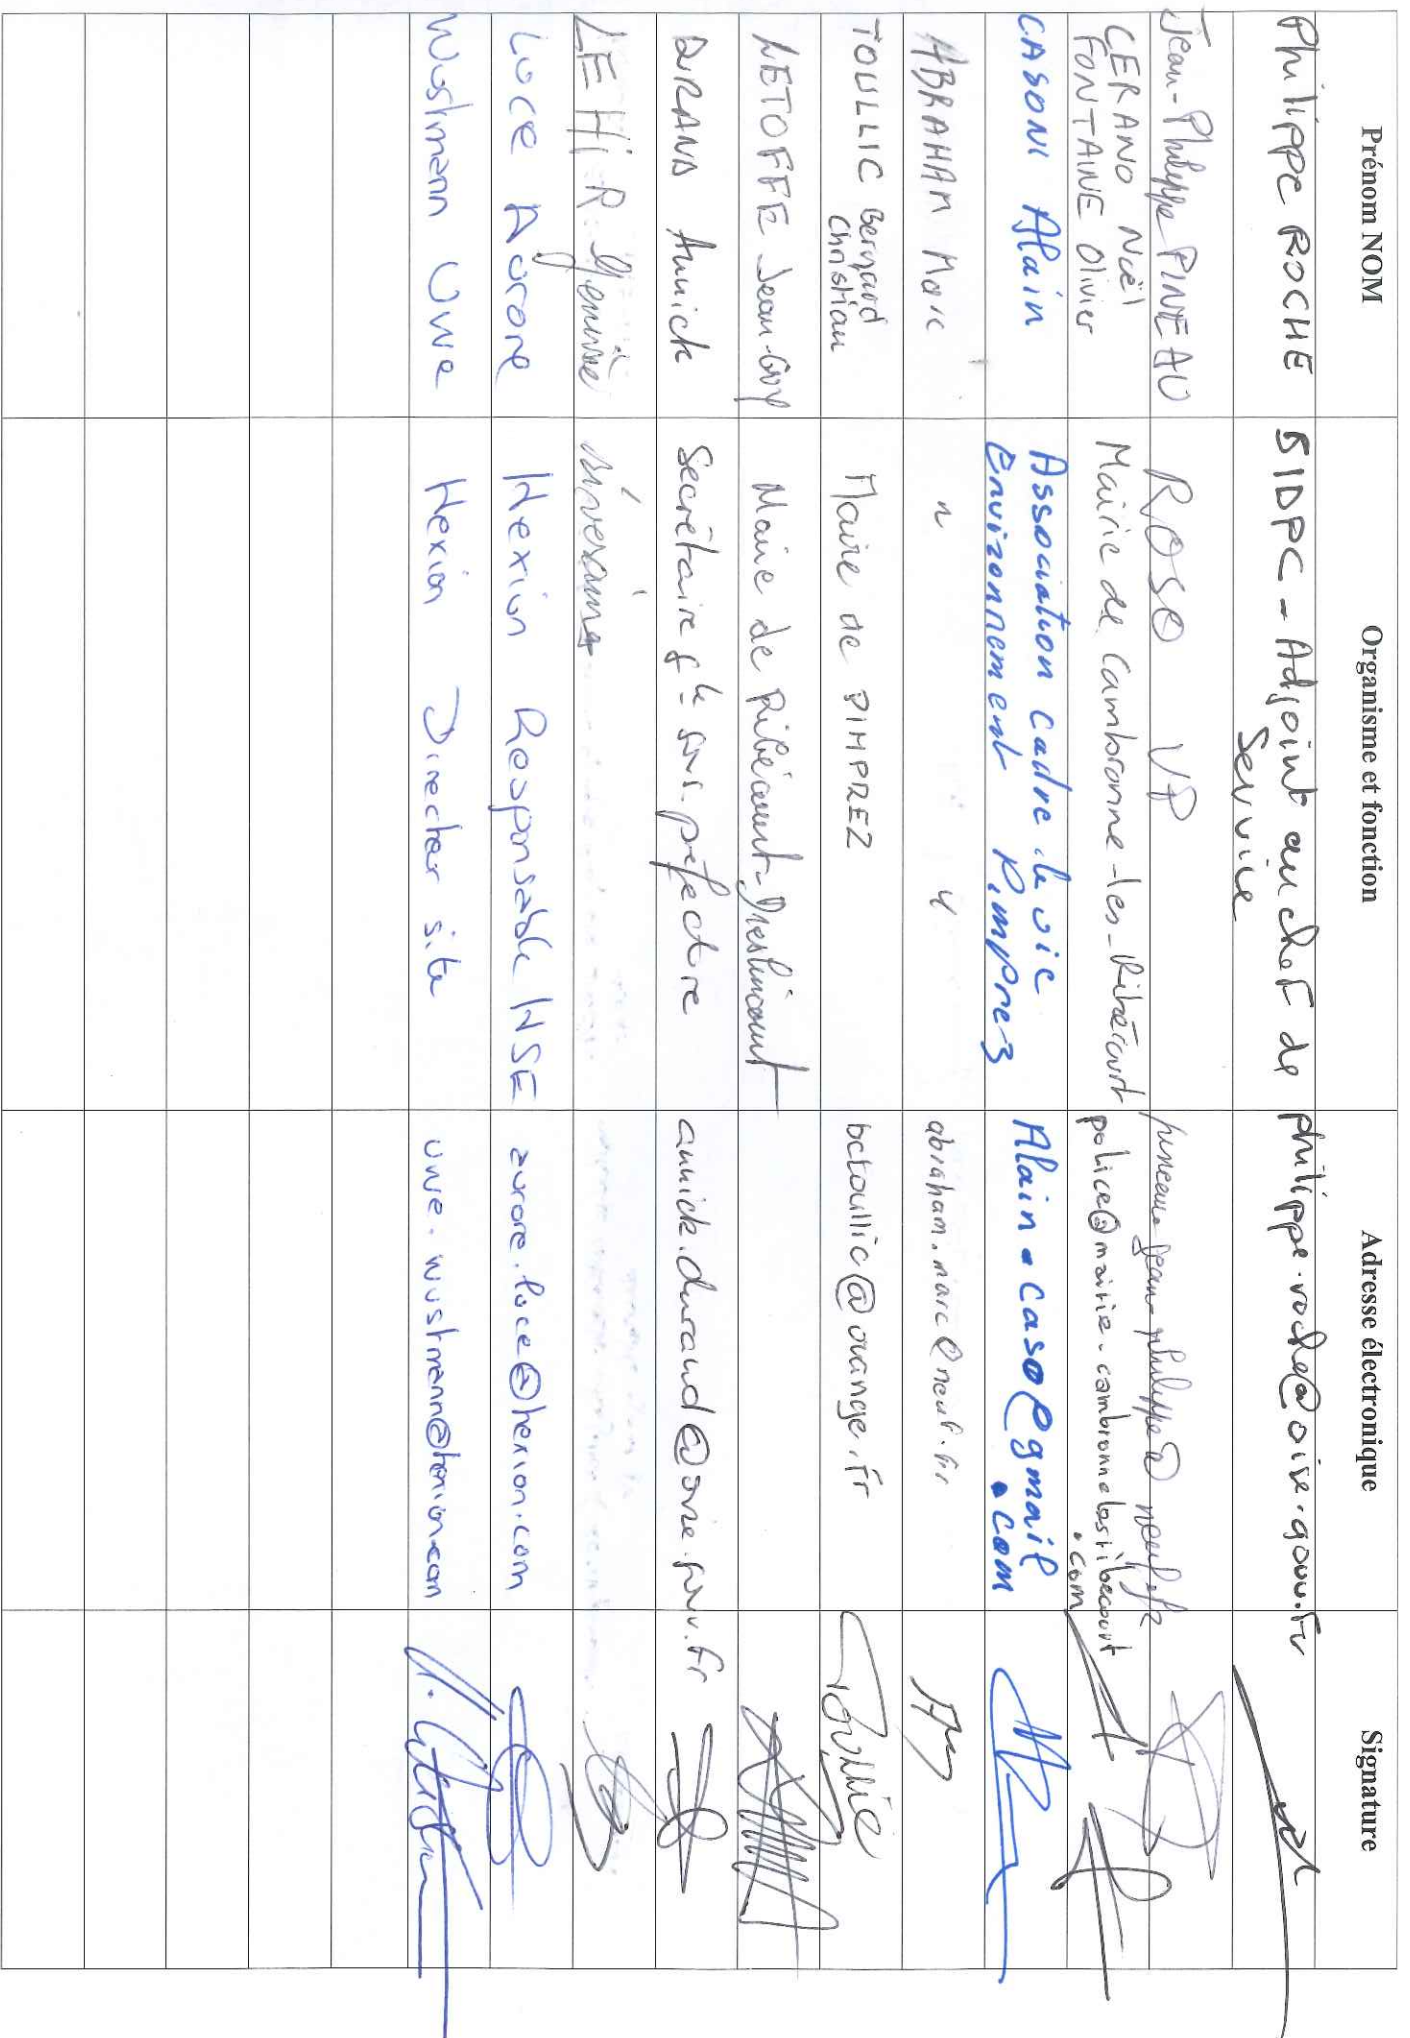 Prénom NOM Organisme et fonction Adresse électronique Signature
Philippe ROCHE SIDPC - Adjoint au chef de philippe.roche@oise.gouv.fr
Service
Jean-Philippe PINEAU ROSO VP pineau.jean-philippe@neuf.fr
CERANO Noël Mairie de Cambronne-les-Ribécourt police@mairie-cambronnelesribecourt
FONTAINE Olivier .com
CASONI Alain Association Cadre de vie Alain.caso@gmail
Environnement Pimprez .com
ABRAHAM Marc " " abraham.marc@neuf.fr
TOULLIC Bernard Maire de PIMPREZ bctoullic@orange.fr Toullic
Christian
LETOFFE Jean-Guy Maire de Ribécourt-Dreslincourt
DURAND Annick Secrétaire gle sous-préfecture annick.durand@oise.gouv.fr
LE HIR riveraine
Loce Aurore Hexion Responsable HSE aurore.loce@hexion.com
Wustmann Uwe Hexion Directeur site uwe.wustmann@hexion.com